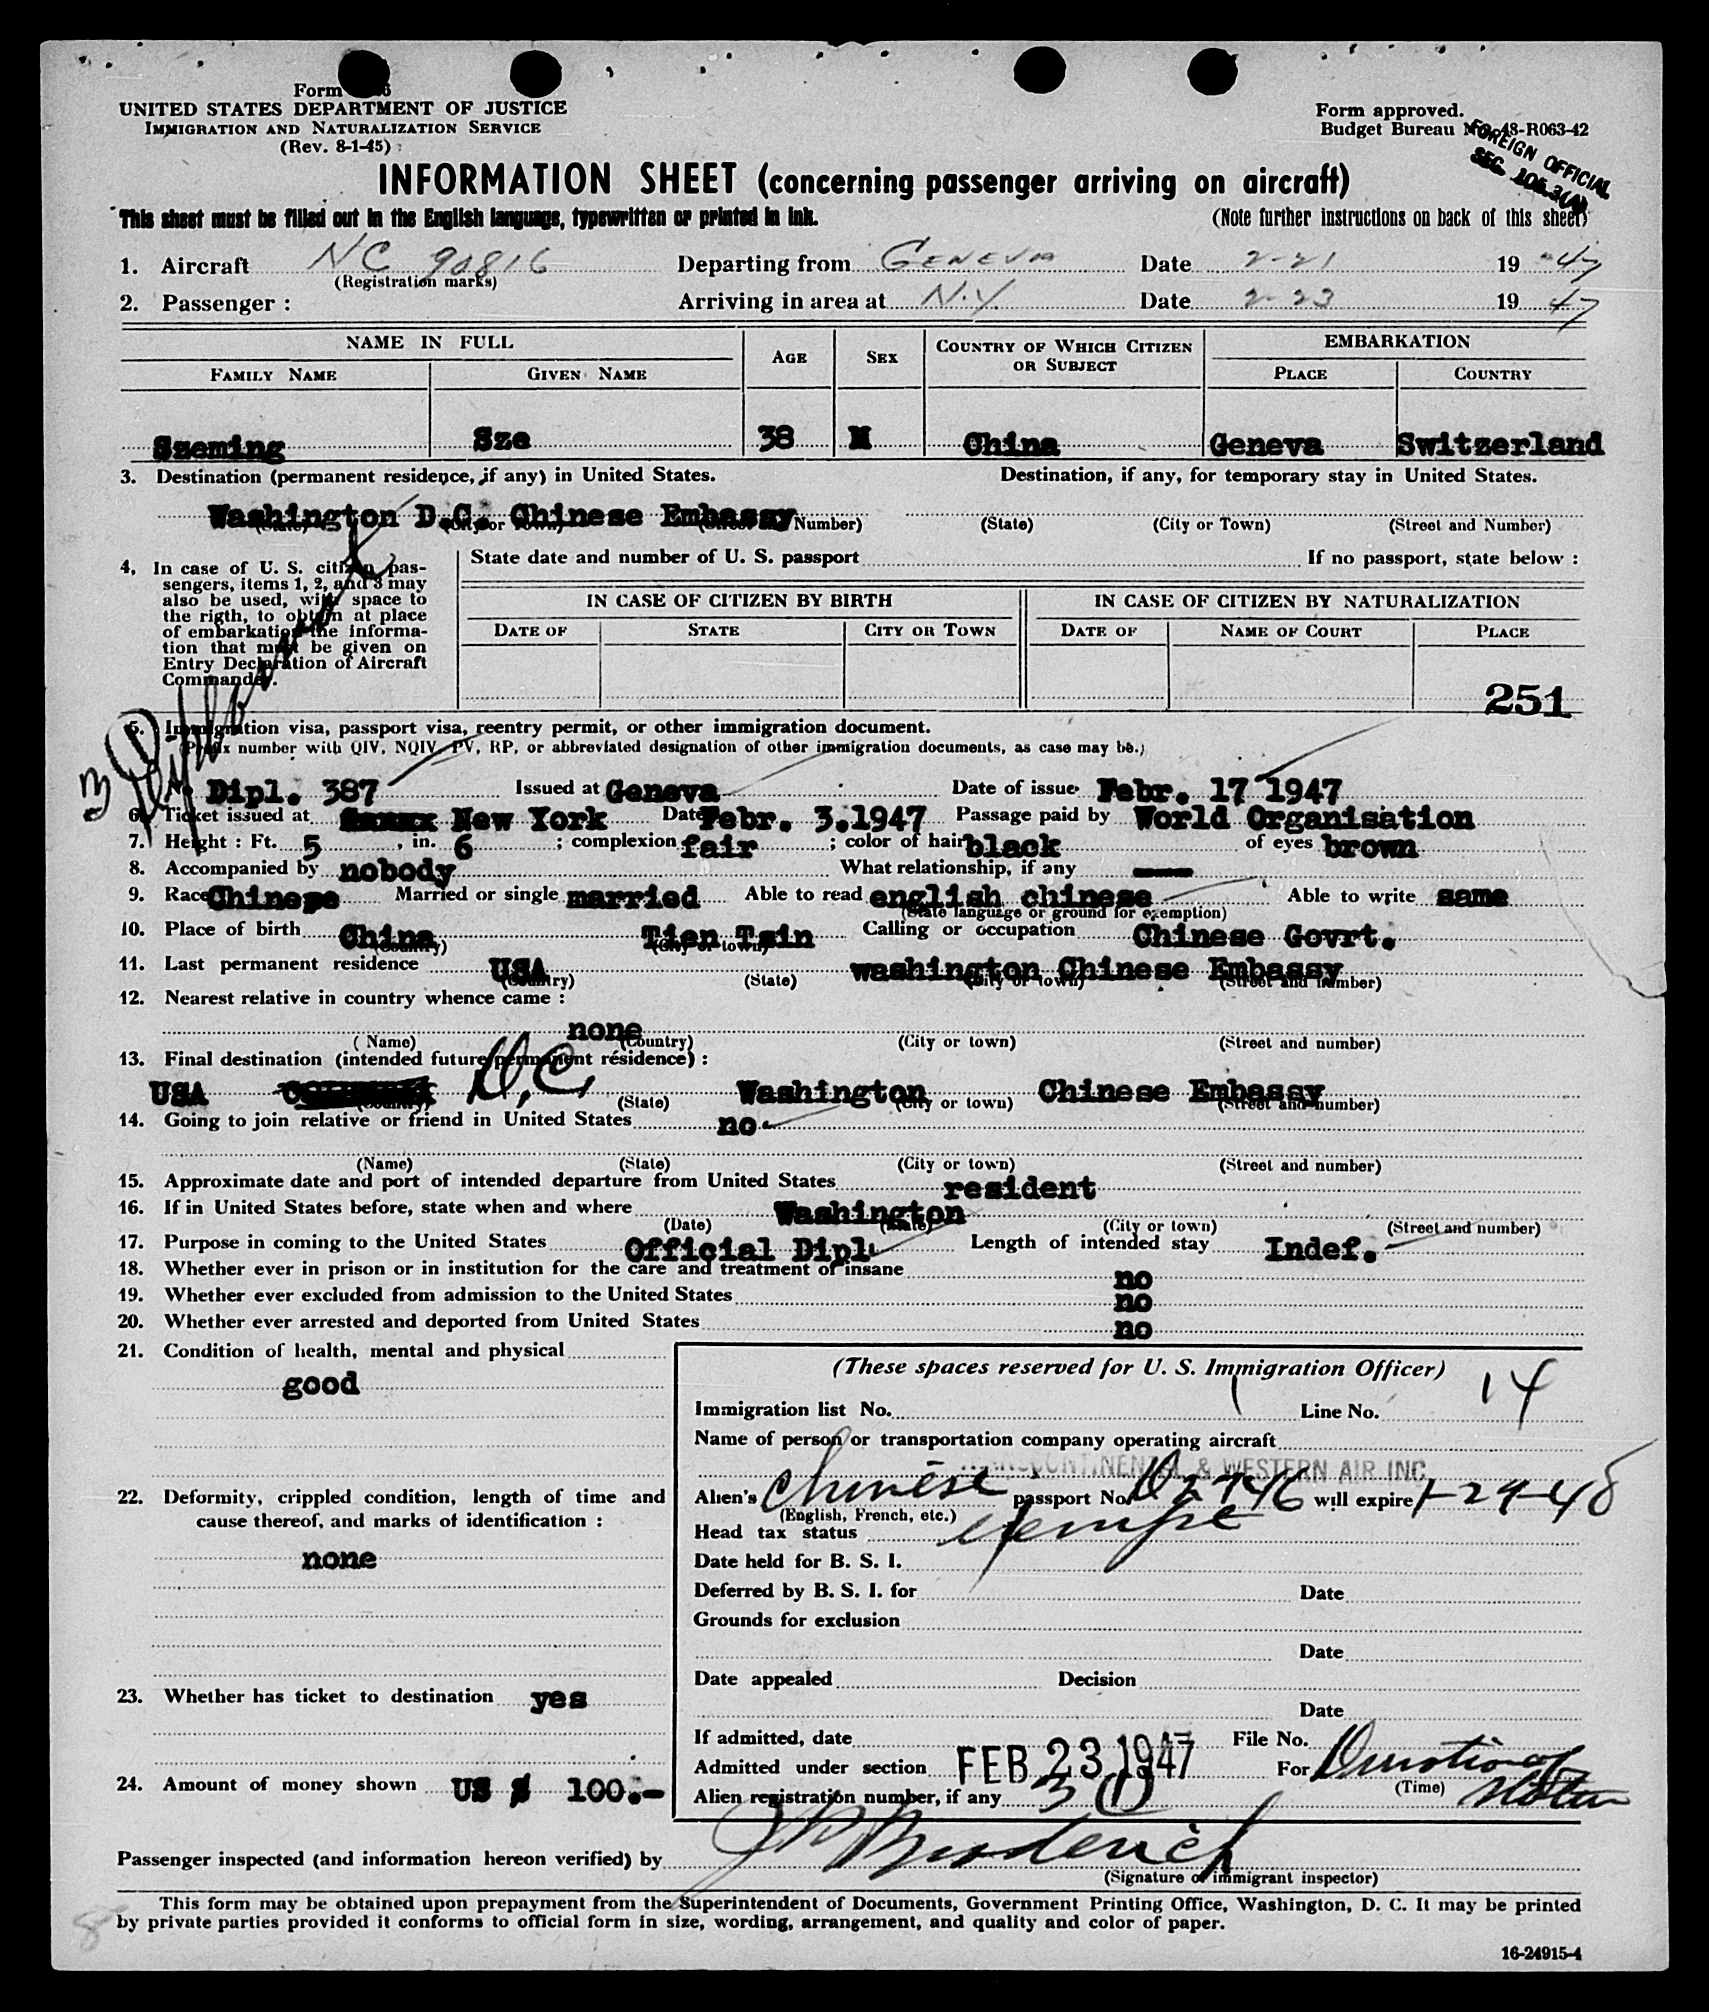 Form
UNITED STATES DEPARTMENT OF JUSTICE
IMMIGRATION AND NATURALIZATION SERVICE
(Rev. 8-1-45)
Form approved.
Budget Bureau No. 48-R063-42
FOREIGN OFFICIAL
SEC.
INFORMATION SHEET (concerning passenger arriving on aircraft)
This sheet must be filled out in the English language, typewritten or printed in ink. (Note further instructions on back of this sheet)
1. Aircraft NC 90816 Departing from GENEVA Date 2-21 1947
(Registration marks)
2. Passenger : Arriving in area at N.Y. Date 2-23 1947
NAME IN FULL AGE SEX COUNTRY OF WHICH CITIZEN OR SUBJECT EMBARKATION
FAMILY NAME GIVEN NAME PLACE COUNTRY
Szeming Sze 38 M China Geneva Switzerland
3. Destination (permanent residence, if any) in United States. Destination, if any, for temporary stay in United States.
Washington D.C. Chinese Embassy
(State) (City or Town) Number) (State) (City or Town) (Street and Number)
4. In case of U. S. citizen pas-
sengers, items 1, 2, and 3 may
also be used, with space to
the rigth, to obtain at place
of embarkation the informa-
tion that must be given on
Entry Declaration of Aircraft
Commander.
State date and number of U. S. passport If no passport, state below :
IN CASE OF CITIZEN BY BIRTH IN CASE OF CITIZEN BY NATURALIZATION
DATE OF STATE CITY OR TOWN DATE OF NAME OF COURT PLACE
251
5. Immigration visa, passport visa, reentry permit, or other immigration document.
(Prefix number with QIV, NQIV, PV, RP, or abbreviated designation of other immigration documents, as case may be.)
No. Dipl. 387 Issued at Geneva Date of issue Febr. 17 1947
6. Ticket issued at New York Date Febr. 3.1947 Passage paid by World Organisation
7. Height : Ft. 5, in. 6 ; complexion fair ; color of hair black of eyes brown
8. Accompanied by nobody What relationship, if any
9. Race Chinese Married or single married Able to read english chinese Able to write same
(State language or ground for exemption)
10. Place of birth China Tien Tsin Calling or occupation Chinese Govrt.
(Country) (City or town)
11. Last permanent residence USA washington Chinese Embassy
(Country) (State) (City or town) (Street and number)
12. Nearest relative in country whence came :
none
(Name) (Country) (City or town) (Street and number)
13. Final destination (intended future permanent résidence) :
USA D.C. Washington Chinese Embassy
(Country) (State) (City or town) (Street and number)
14. Going to join relative or friend in United States no
(Name) (State) (City or town) (Street and number)
15. Approximate date and port of intended departure from United States resident
16. If in United States before, state when and where Washington
(Date) (State) (City or town) (Street and number)
17. Purpose in coming to the United States Official Dipl. Length of intended stay Indef.
18. Whether ever in prison or in institution for the care and treatment of insane no
19. Whether ever excluded from admission to the United States no
20. Whether ever arrested and deported from United States no
21. Condition of health, mental and physical
good
22. Deformity, crippled condition, length of time and
cause thereof, and marks of identification :
none
23. Whether has ticket to destination yes
24. Amount of money shown US $ 100.-
(These spaces reserved for U. S. Immigration Officer)
Immigration list No. 1 Line No. 14
Name of person or transportation company operating aircraft
TRANSCONTINENTAL & WESTERN AIR INC
Alien's Chinese passport No. D 2746 will expire 1-29-48
(English, French, etc.)
Head tax status exempt
Date held for B. S. I.
Deferred by B. S. I. for Date
Grounds for exclusion
Date
Date appealed Decision
Date
If admitted, date FEB 23 1947 File No.
Admitted under section 3 (1) For Duration of Status
(Time)
Alien registration number, if any
3 Diplomat
Passenger inspected (and information hereon verified) by Broderick
(Signature of immigrant inspector)
This form may be obtained upon prepayment from the Superintendent of Documents, Government Printing Office, Washington, D. C. It may be printed
by private parties provided it conforms to official form in size, wording, arrangement, and quality and color of paper.
8
16-24915-4